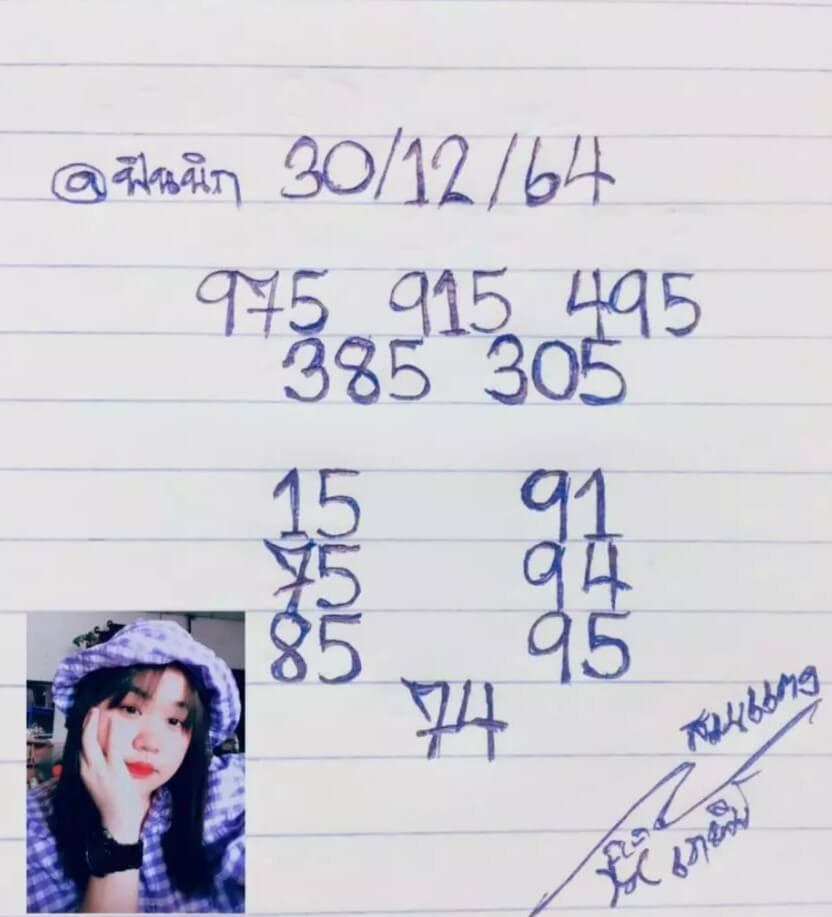 @ฟินนิก 30/12/64
975 915 495
385 305
15 91
75 94
85 95
74